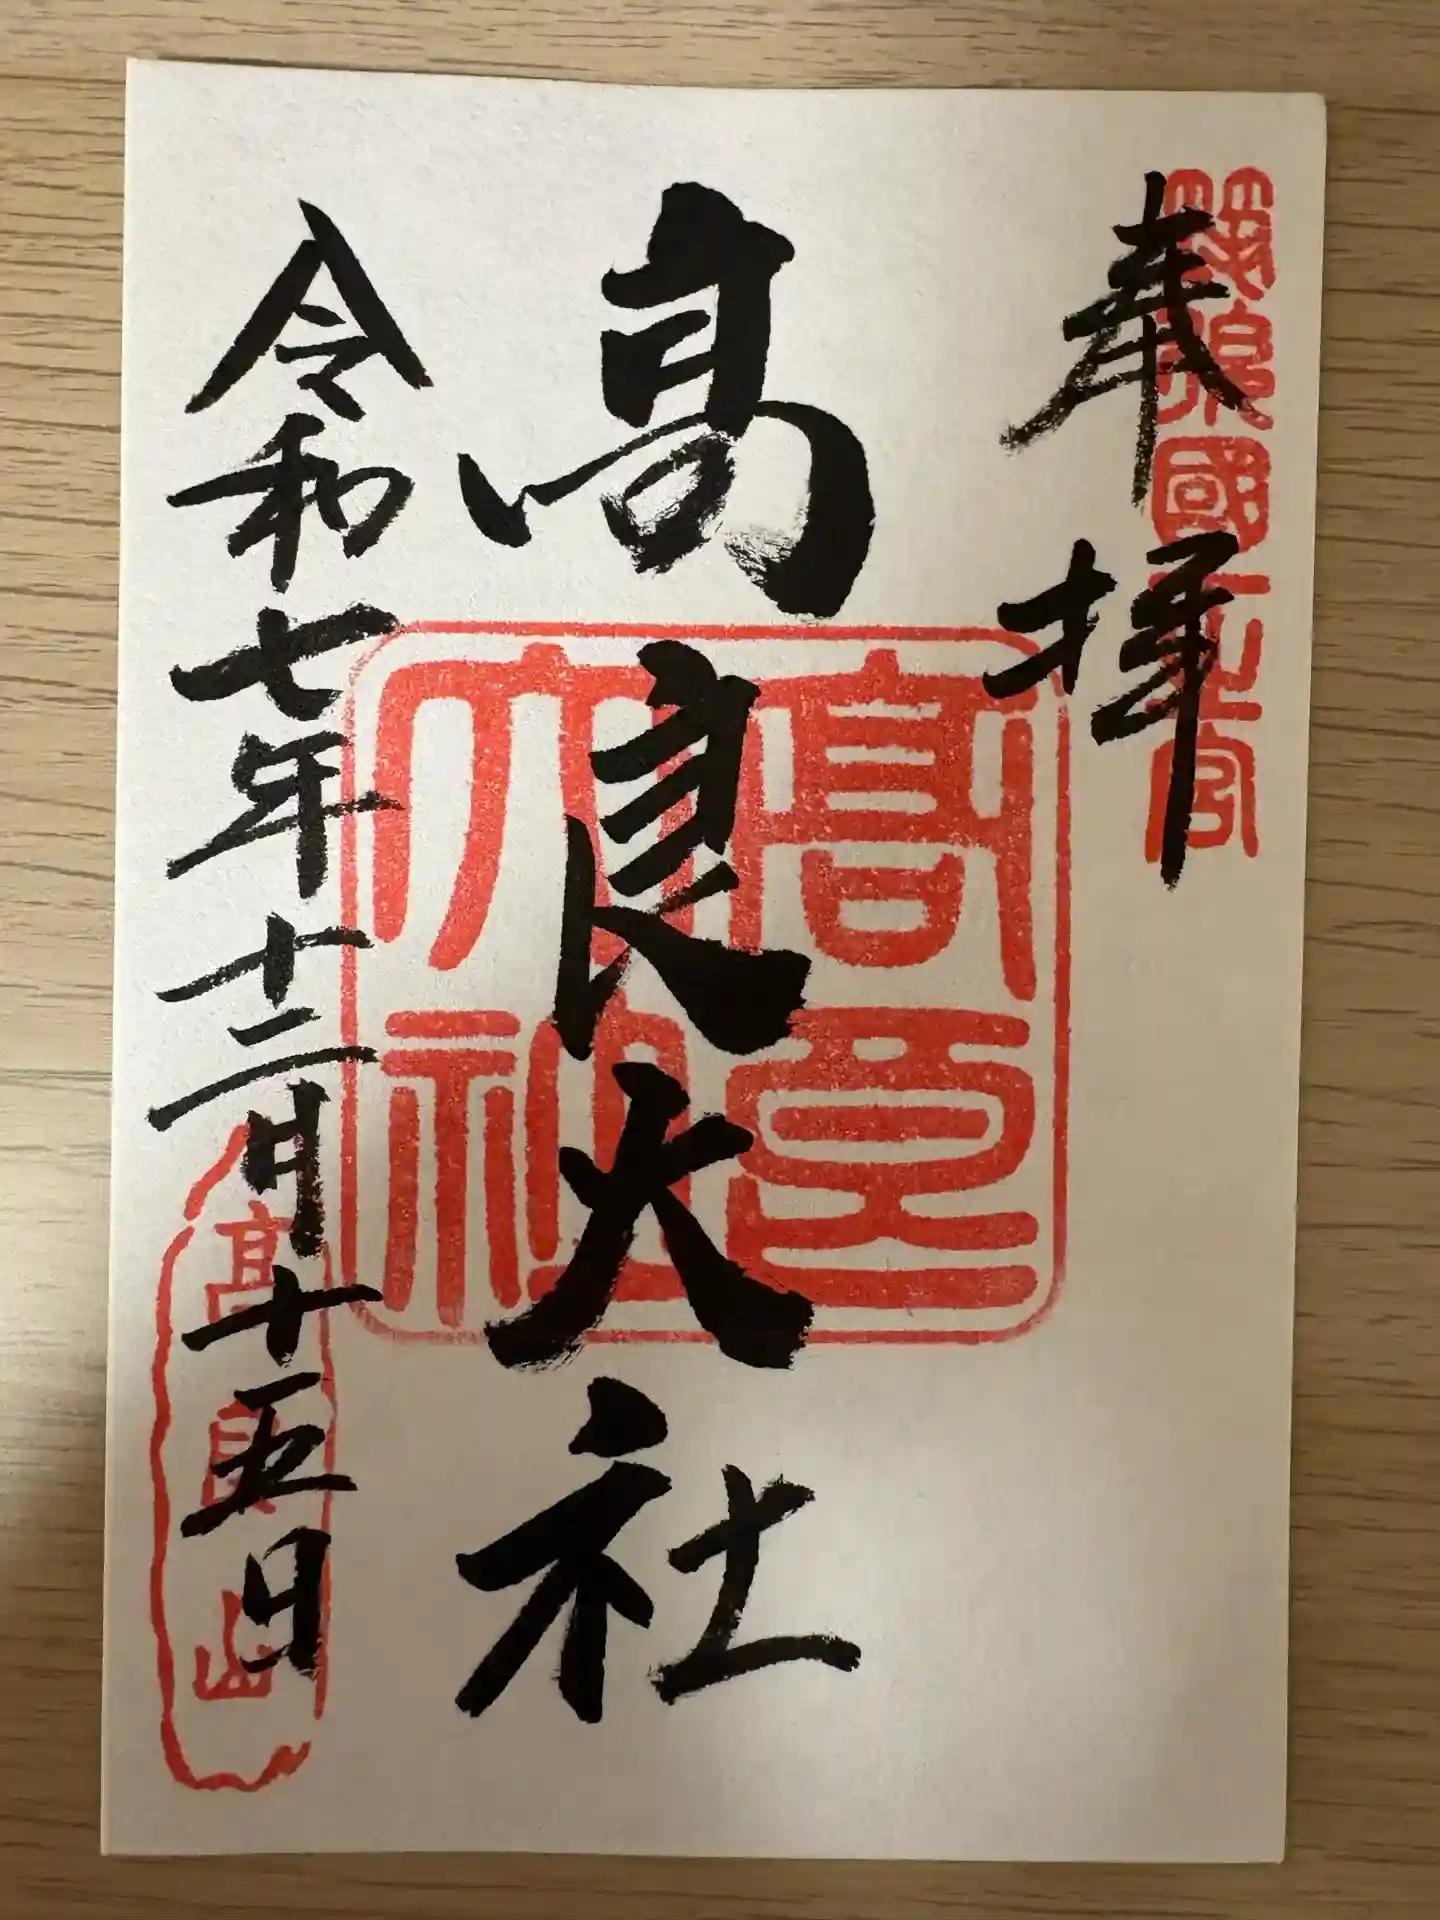 奉拝
筑後國一之宮
髙良大社
高良大社
令和七年十二月十五日
高良山